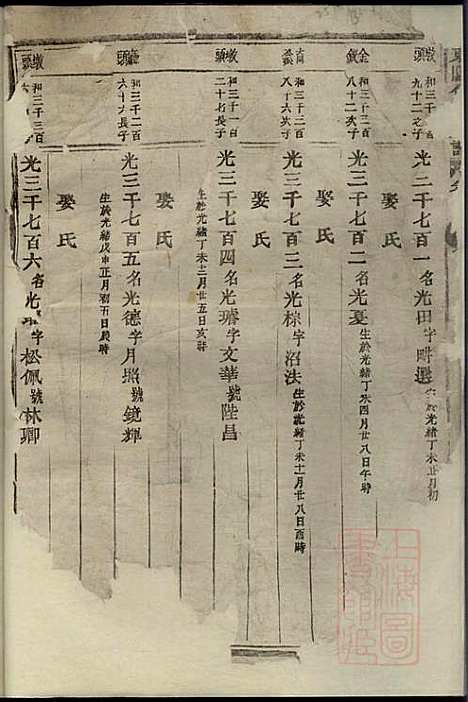 敦頭
和三千
九十二之子
光三千七百一名光田字畊選
生於光緒丁未正月初
娶氏
金錢
和三千三百
八十二次子
光三千七百二名光夏
生於光緒丁未四月廿八日午時
娶氏
和三千三百
八十六次子
光三千七百三名光棕字沼法
生於光緒丁未十一月廿八日酉時
娶氏
敦頭
和三千一百
二十七長子
光三千七百四名光璿字文華號陞昌
生於光緒丁未十二月廿五日亥時
娶氏
頭
和三千二百
六十六長子
光三千七百五名光德字月照號鏡輝
生於光緒戊申正月初五日辰時
娶氏
敦頭
和三千三百
光三千七百六名光 字松佩號林卿
上海圖書館藏